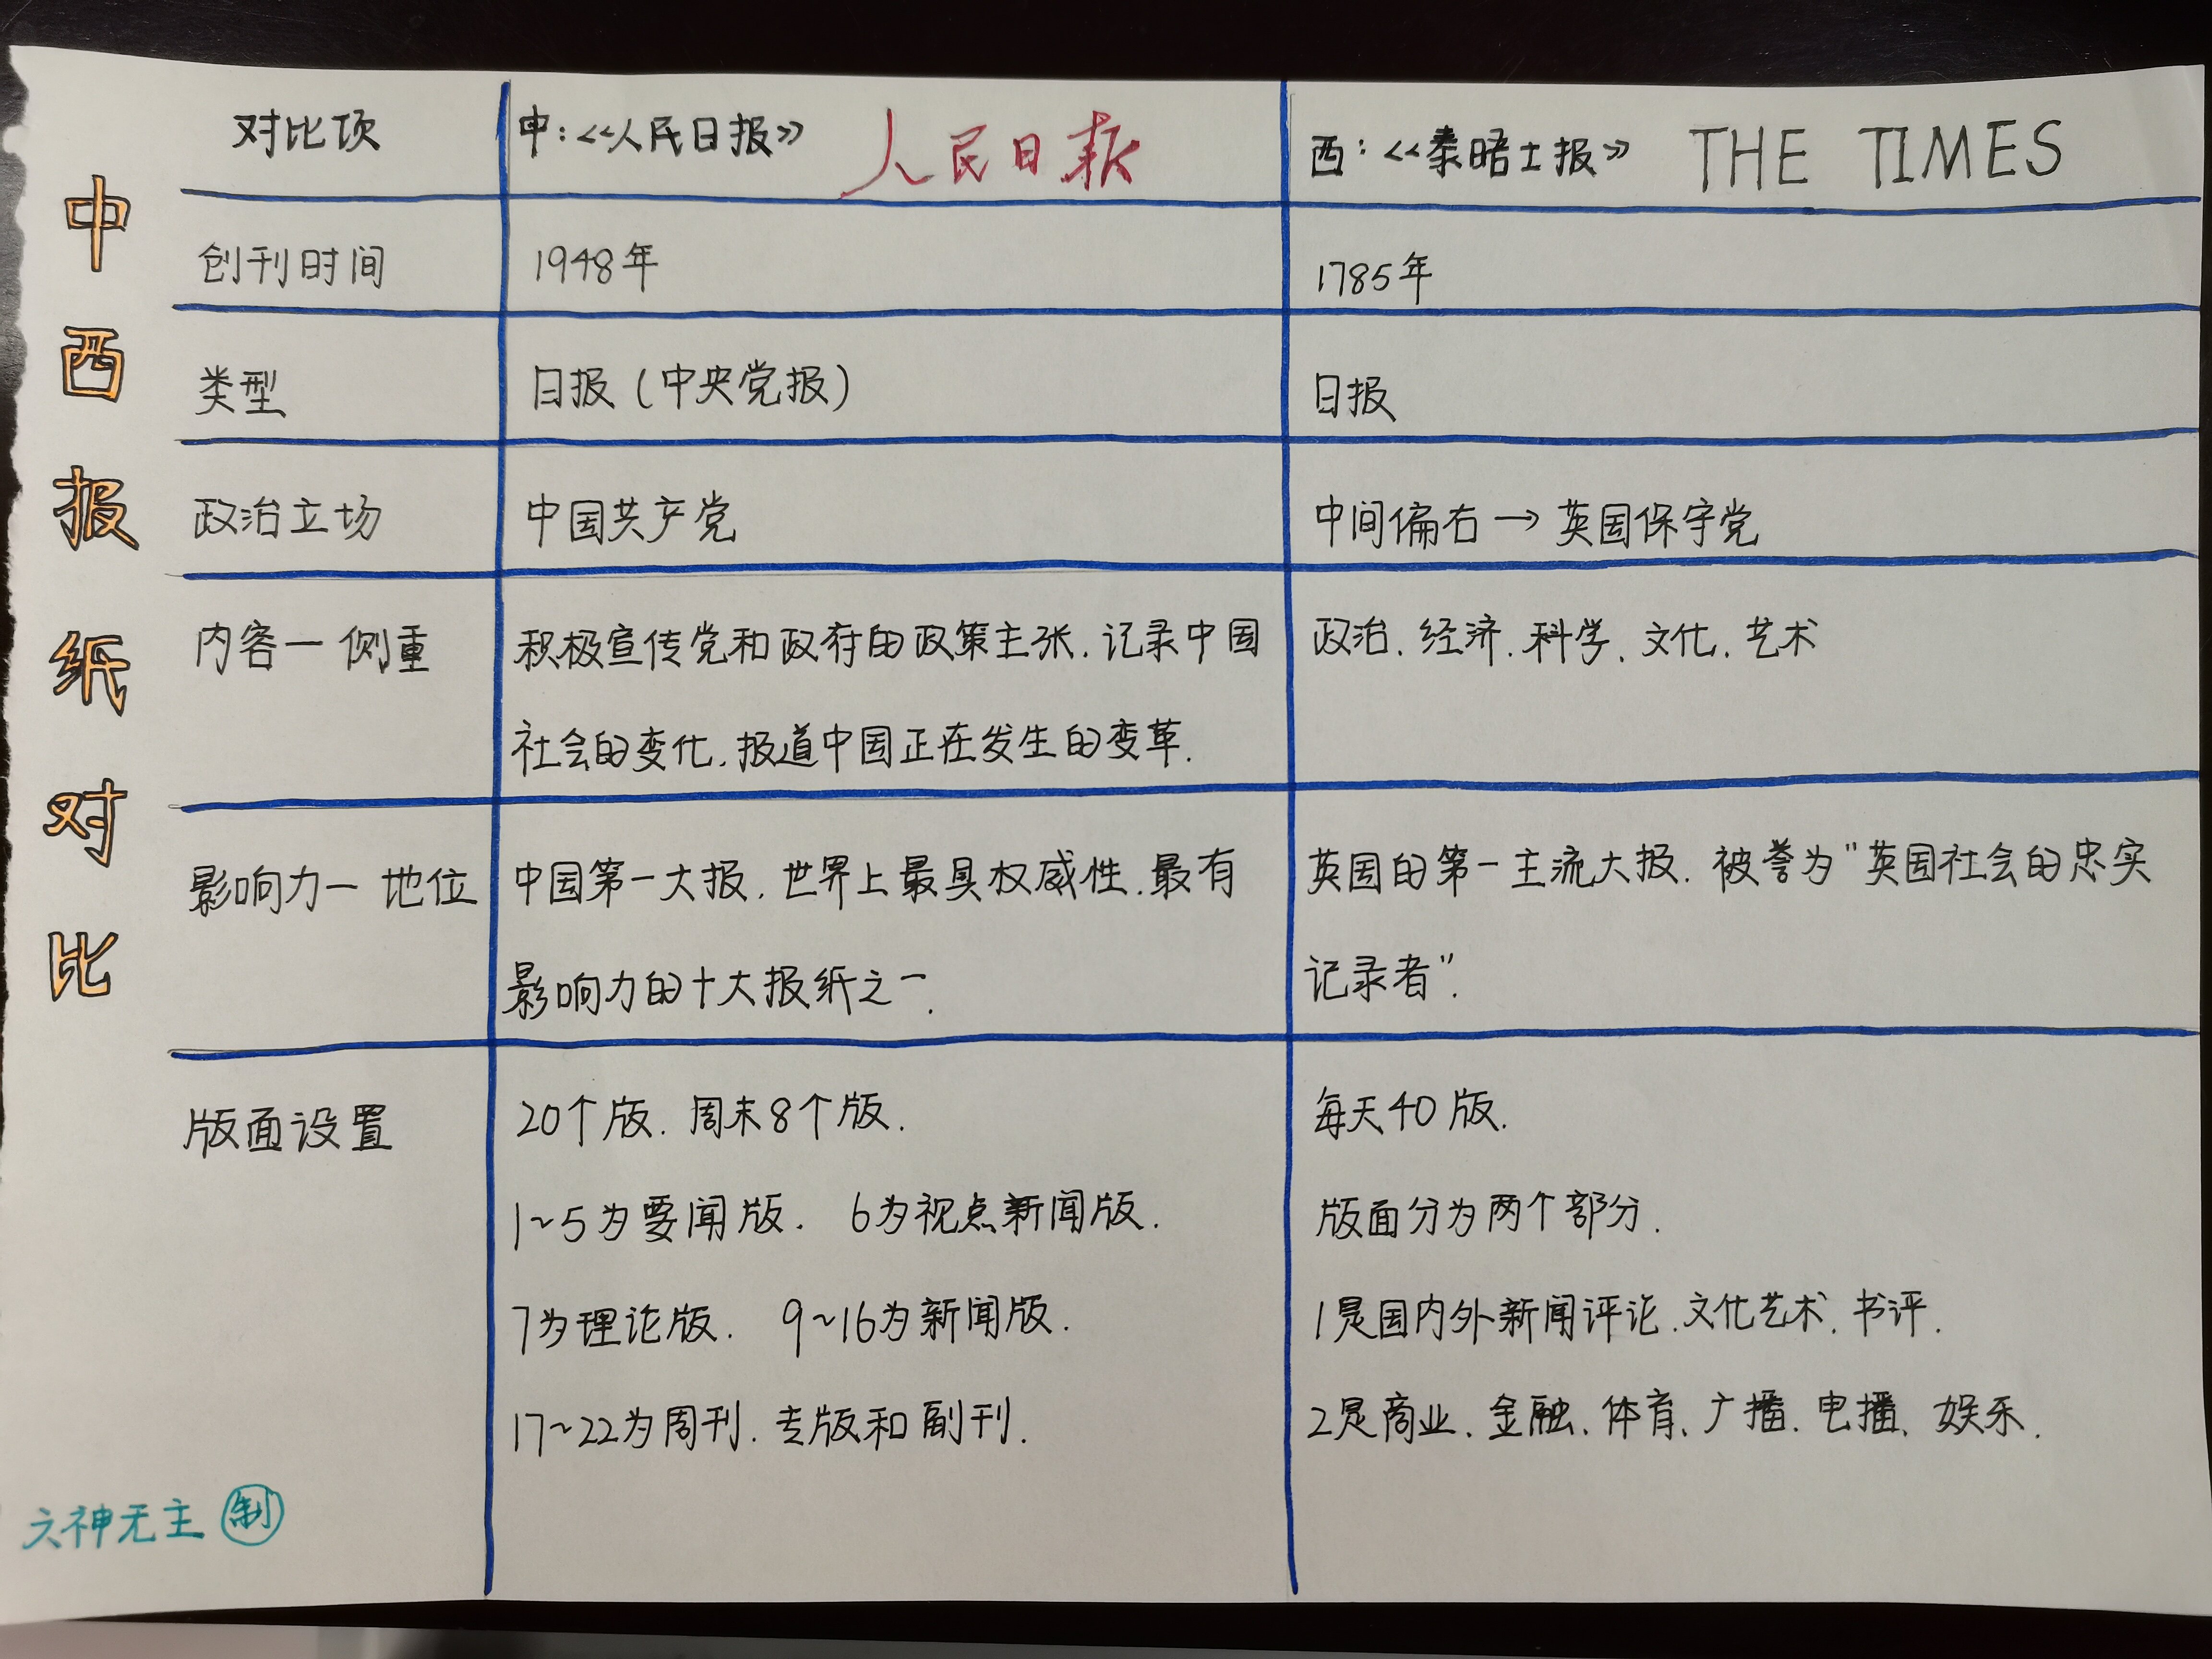 中西报纸对比
对比项
中：《人民日报》 人民日报
西：《泰晤士报》 THE TIMES
创刊时间
1948年
1785年
类型
日报（中央党报）
日报
政治立场
中国共产党
中间偏右→英国保守党
内容—侧重
积极宣传党和政府的政策主张.记录中国
社会的变化.报道中国正在发生的变革.
政治.经济.科学、文化.艺术
影响力—地位
中国第一大报.世界上最具权威性.最有
影响力的十大报纸之一.
英国的第一主流大报.被誉为"英国社会的忠实
记录者".
版面设置
20个版.周末8个版.
1~5为要闻版. 6为视点新闻版.
7为理论版. 9~16为新闻版.
17~22为周刊.专版和副刊.
每天40版.
版面分为两个部分.
1是国内外新闻评论.文化艺术.书评.
2是商业.金融、体育、广播.电播、娱乐.
六神无主 制